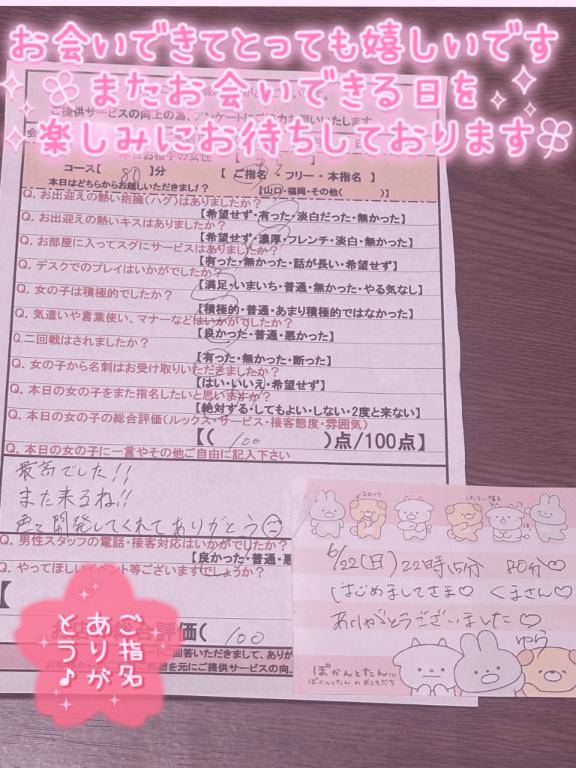 お会いできてとっても嬉しいです
またお会いできる日を
楽しみにお待ちしております
ご提供サービスの向上の為、アンケートにご協力お願いいたします
コース【 80 】分 【 ご指名・フリー・本指名 】
本日はどちらからお越しいただきまし？ 【山口・福岡・その他( )】
Q. お出迎えの熱い抱擁(ハグ)はありましたか?
【希望せず・有った・淡白だった・無かった】
Q. お出迎えの熱いキスはありましたか?
【希望せず・濃厚・フレンチ・淡白・無かった】
Q. お部屋に入ってスグにサービスはありましたか?
【有った・無かった・話が長い・希望せず】
Q. デスクでのプレイはいかがでしたか？
【満足・いまいち・普通・無かった・やる気なし】
Q. 女の子は積極的でしたか？
【積極的・普通・あまり積極的ではなかった】
Q. 気遣いや言葉使い、マナーなどはいかがでしたか？
【良かった・普通・悪かった】
Q.二回戦はされましたか？
【有った・無かった・断った】
Q. 女の子から名刺はお受け取りいただきましたか？
【はい・いいえ・希望せず】
Q. 本日の女の子をまた指名したいと思いますか？
【絶対する・してもよい・しない・2度と来ない】
Q. 本日の女の子の総合評価(ルックス・サービス・接客態度・雰囲気)
【( 100 )点/100点】
Q. 本日の女の子に一言やその他ご自由に記入下さい
最高でした!!
また来るね!!
色々開発してくれてありがとう
Q. 男性スタッフの電話・接客対応はいかがでしたか？
【良かった・普通・悪
Q. やってほしいイベント等ございますでしょうか？
【
総合評価( 100
ご指名
ありが
とう♪
6/22(日) 22時15分 80分♡
はじめましてさま♡ くまさん♡
ありがとうございました♡
ゆら
ぽかんとたん
ぽかんとたんのおともだち